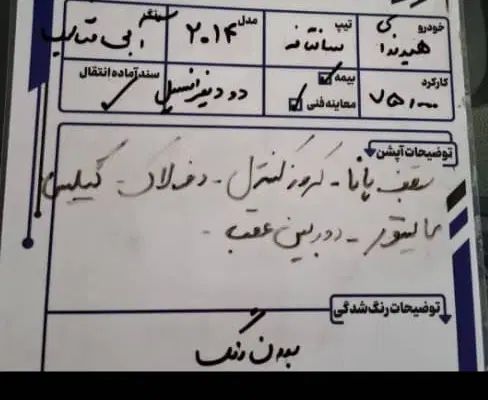 خودرو هیوندای تیپ سانتافه مدل ۲۰۱۴ رنگ آبی متالیک
کارکرد ۷۵۱۰۰۰ بیمه ☑ معاینه فنی ☑ دو دیفرانسیل سند آماده انتقال ✓
توضیحات آپشن
سقف پانا - کروز کنترل - دف لاک - کیلس
مانیتور - دوربین عقب -
توضیحات رنگ شدگی
بدون رنگ